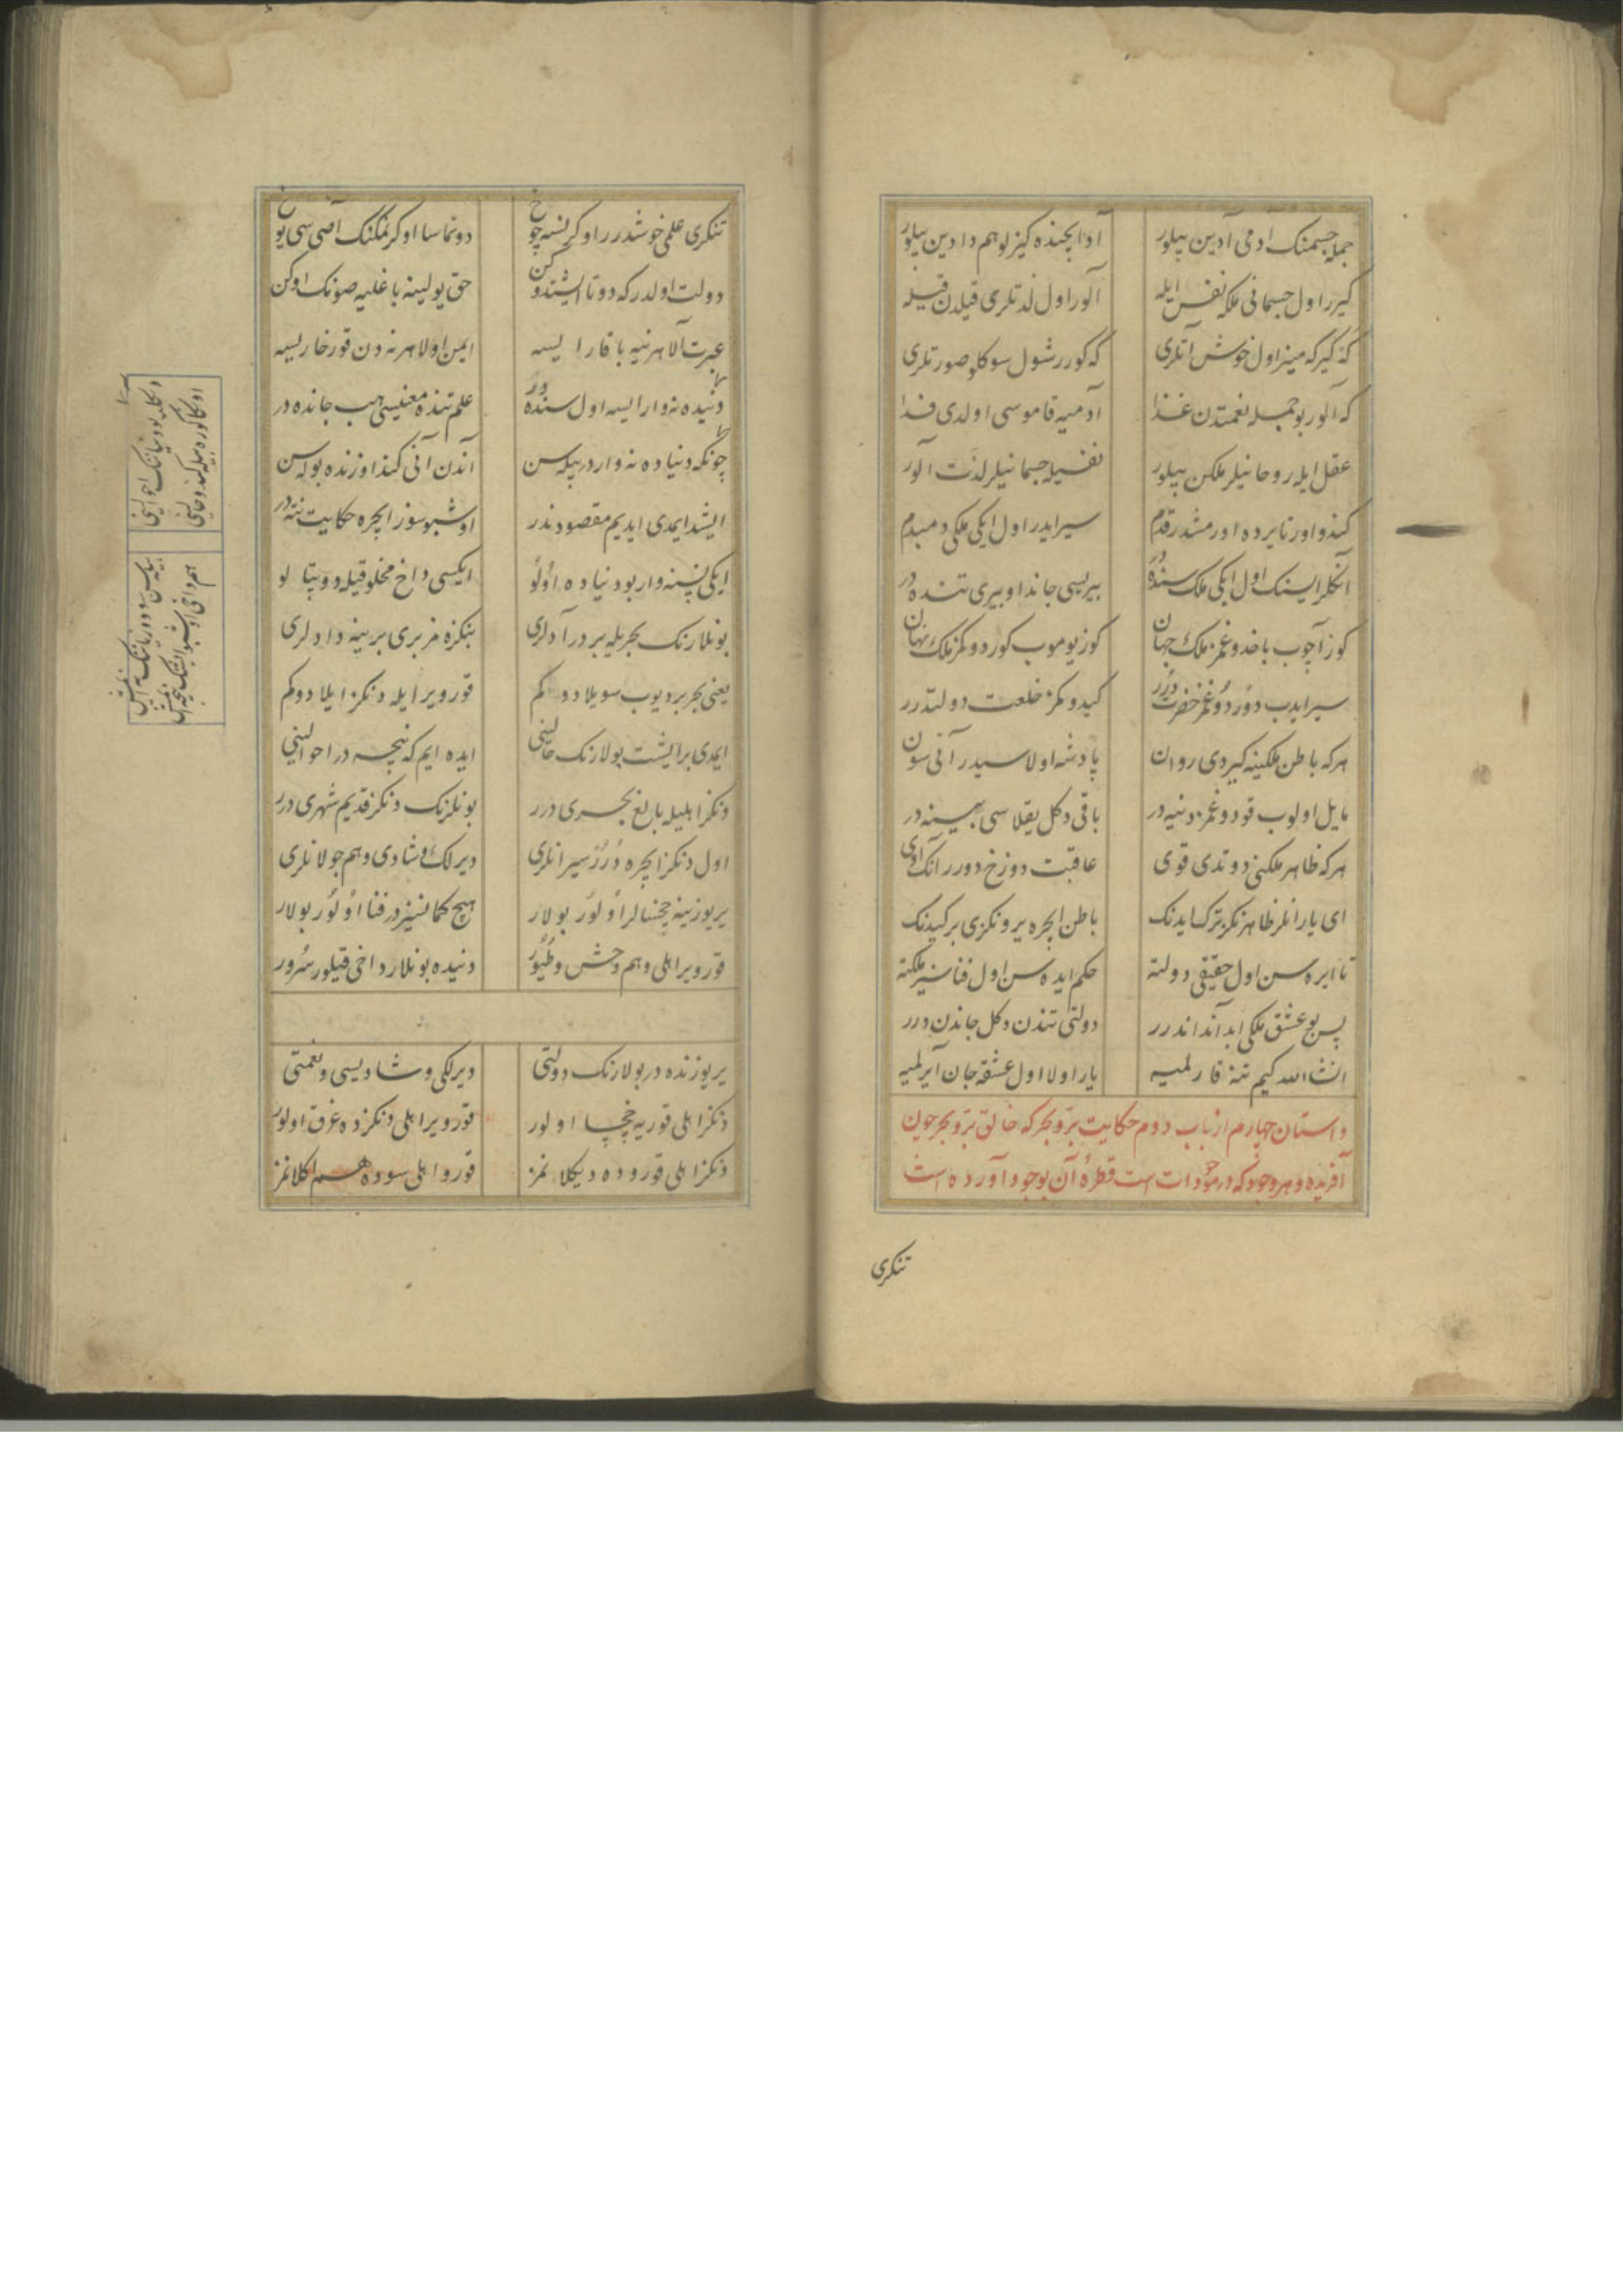 جمله جسمنک آدمی آدین بیلور آد ایچنده کیزلو هم دادین بیلور
کیرر اول جسمانی ملکه نفس ایله آلور اول لذتلری قیلدن قیله
که کیرکه مینر اول خوش آتلری که کورر شول سوکلو صورتلری
که آلور بو جمله نعمتدن غذا آدمیه قاموسی اولدی فدا
عقل ایله روحانیلر ملکن بیلور نفسیله جسمانیلر لذت آلور
کندو اورتا یرده اورمشدر قدم سیر ایدر اول ایکی ملکی دمبدم
آنکلر ایسنک اول ایکی ملک سنده در بیریسی جاندا و بیری تنده در
کوز آچوب باخدوغمز ملک جهان کوز یوموب کوردوکمز ملک نهان
سیر ایدب دوردوغمز خضرت درر کیدوکمز خلعت دولتدرر
هر که باطن ملکینه کیردی روان پادشه اولاسیدر آنی سون
مایل اولوب قودوغمز دنیه در باقی دکل یقلاسی بسینه در
هر که ظاهر ملکنی دوتدی قوی عاقبت دوزخ دورر آنک اوی
ای یارانلر ظاهرنکز ترک ایدنک باطن ایچره یرونکزی برکیدنک
تا ایره سن اول حقیقی دولته حکم ایده سن اول فناسیز ملکته
پس بو عشق ملکی ابد آنداندرر دولتی تندن دکل جاندن درر
انشاالله کیم تنه قارلمیه یار اولا اول عشقه جان آیرلمیه
داستان چهارم از باب دوم حکایت بر و بحر که خالق بر و بحر چون
آفریده و هر وجود که در موجودات است قطرهٔ آن بوجود آورده است
تنکری
تنکری علمی خوشدرر اوکرنسه چوخ دوتماسا اوکرنمکنک آصی سی یوخ
دولت اولدر که دوتا ایشتدوکن حق یولینه باغلیه صونک اوکن
عبرت آلا هر نیه باقارایسه ایمن اولا هر نه دن قورخارایسه
دنیده نه وارایسه اول سنده در علم تنده معنیسی هب جانده در
چونکه دنیاده نه واردر بیله سن آندن آنی کند اوزنده بوله سن
ایشد ایمدی ایدیم مقصود ندر اوشبو سوز ایچره حکایت نته در
ایکی نسنه وار بو دنیاده اولو ایکسی داخ مخلوقیله دوپتالو
بونلارنک بحریله بردر آدلری بنکزه مز بری برینه دادلری
یعنی بحر بر دیوب سویلادوکم قورو یر ایله دنکز ایلادوکم
ایمدی بر ایشت بولارنک حالینی ایده ایم که نیجه در احوالینی
دنکز اهلیله بالغ بحری درر بونلرنک دنکز قدیم شهری درر
اول دنکز ایچره درر سیرانلری دیرلک و شادی و هم جولانلری
یر یوزینه چخسالر اولور بولار هیچ کمانسیزدر فنا اولور بولار
قورو یر اهلی و هم وحش و طیور دنیده بونلار داخی قیلور سرور
یر یوزنده در بولارنک دولتی دیرلکی و شادیسی و نعمتی
دنکز اهلی قوریه چخچا اولور قورو یر اهلی دنکزده غرق اولور
دنکز اهلی قوروده دیکلانمز قورو اهلی سوده هم اکلانمز